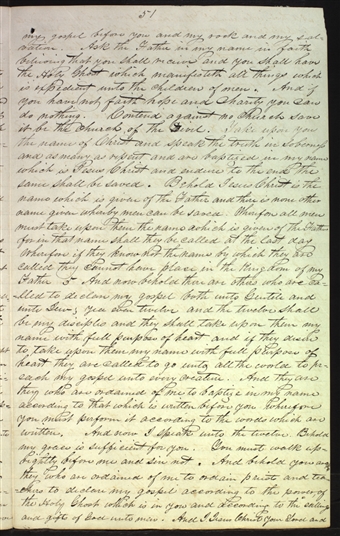 51
my gospel before you and my rock and my sal-
vation. Ask the Father in my name in faith
believing that you shall receive and you shall have
the Holy Ghost which manifesteth all things which
is expedient unto the children of men. And if
you have not faith hope and Charity you can
do nothing. Contend against no Church save
it be the Church of the Devil. Take upon you
the name of Christ and speak the truth in soberness
and as many as repent and are baptized in my name
which is Jesus Christ and endure to the end the
same shall be saved. Behold Jesus Christ is the
name which is given of the Father and there is none other
name given whereby men can be saved. Wherefore all men
must take upon them the name which is given of the Father
for in that name shall they be called at the last day
Wherefore if they know not the name by which they are
called they cannot have place in the Kingdom of my
Father 5 And now behold there are others who are ca-
lled to declare my gospel both unto Gentile and
unto Jew; yea even twelve and the twelve shall
be my disciples and they shall take upon them my
name with full purpose of heart and if they desire
to take upon them my name with full purpose of
heart they are called to go into all the world to pr-
each my gospel unto every creature. And they are
they who are ordained of me to baptize in my name
according to that which is written before you Wherefore
you must perform it according to the words which are
written. And now I speak unto the twelve Behold
my grace is sufficient for you. You must walk up-
rightly before me and sin not. And behold you are
they who are ordained of me to ordain priests and tea-
chers to declare my gospel according to the power of
the Holy Ghost which is in you and according to the calling
and gifts of God unto men. And I Jesus Christ your Lord and